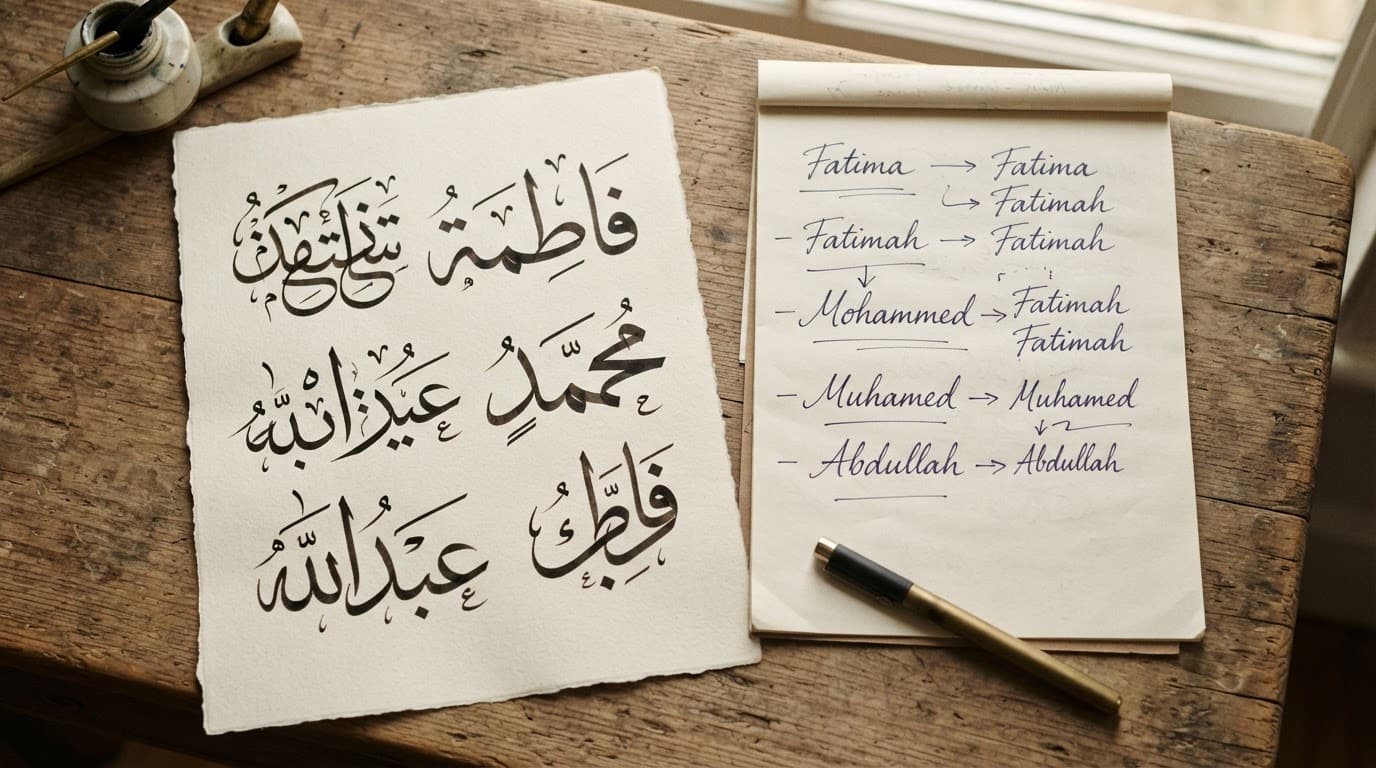 فَاطِمَةُ
مُحمَّدٍ
عَبْدُ اللَّه
Fatima → Fatima
→ Fatimah
- Fatimah → Fatimah
- Mohammed → Fatimah
Fatimah
- Muhamed → Muhamed
- Abdullah → Abdullah